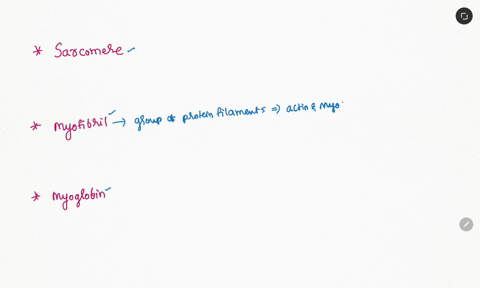 * Sarcomere
* Myofibril → group of protein filaments => actin & myo
* Myoglobin